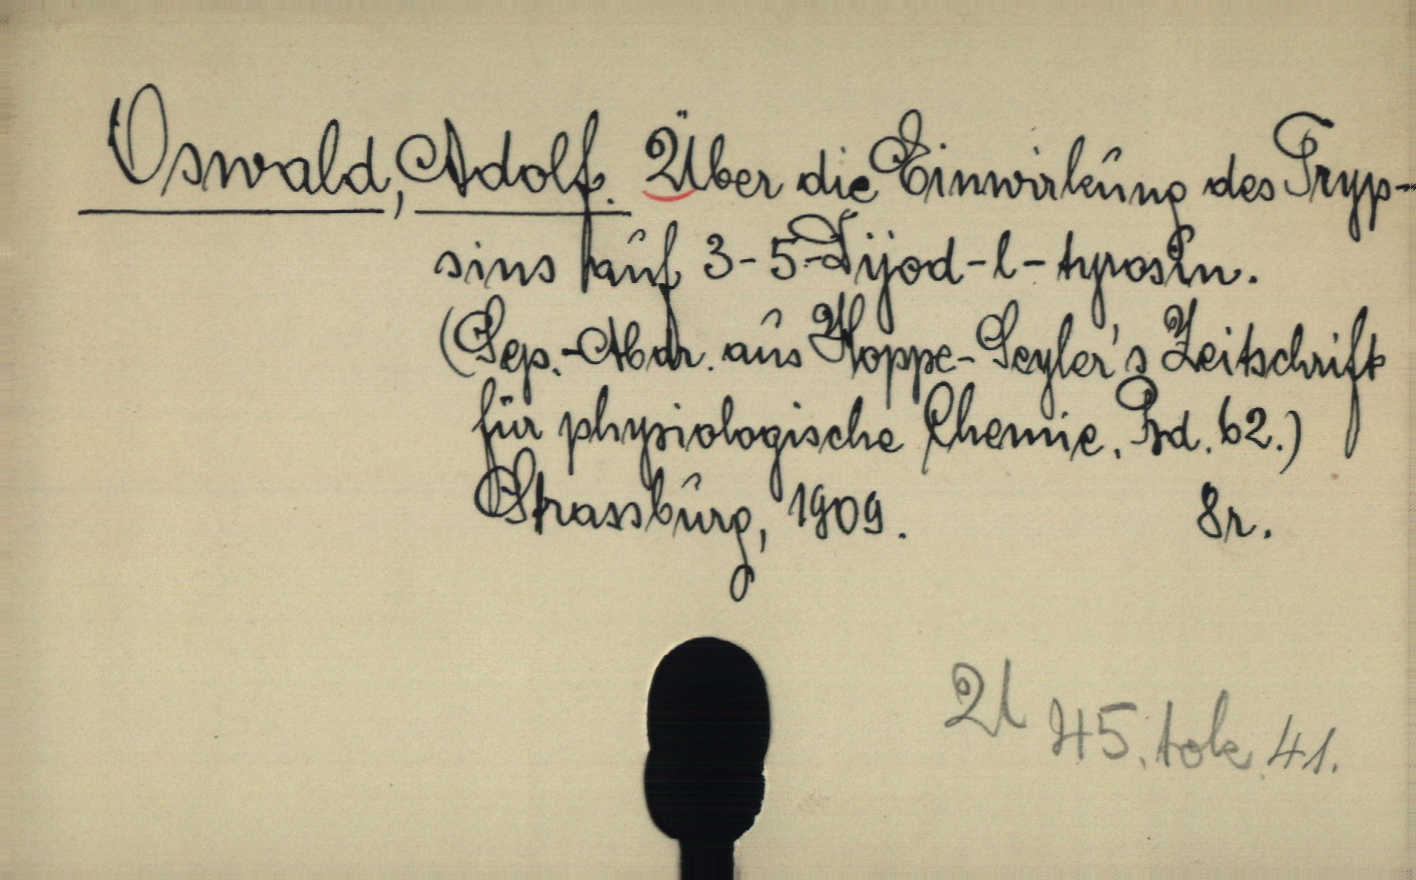 Oswald, Adolf. Über die Einwirkung des Tryp-
sins auf 3-5-Dijod-l-tyrosin.
(Sep.-Abdr. aus Hoppe-Seyler's Zeitschrift
für physiologische Chemie. Bd. 62.)
Strassburg, 1909. 8r.
U 45. tok. 41.